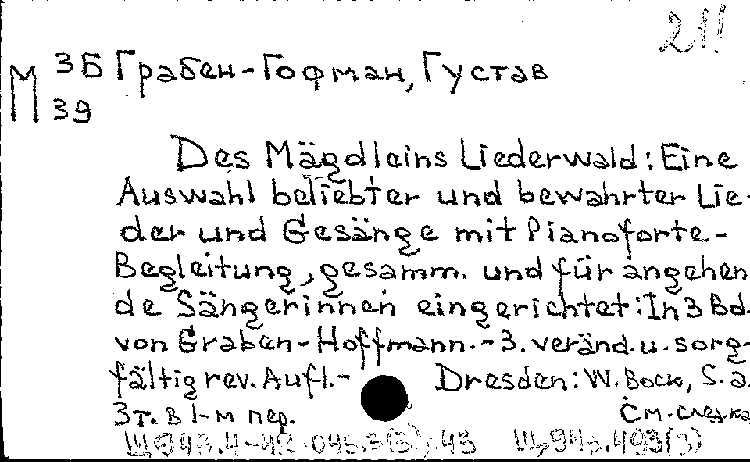 211
М 3Б Грабен-Гофман, Густав
39
Des Mägdleins Liederwald: Eine
Auswahl beliebter und bewährter Lie-
der und Gesänge mit Pianoforte-
Begleitung, gesamm. und für angehen
de Sängerinnen eingerichtet: In 3 Bd.
von Graben-Hoffmann.-3. veränd. u. sorg-
fältig rev. Aufl.- Dresden: W. Bock, S. a.
3 т. в 1-м пер. См. след. ка